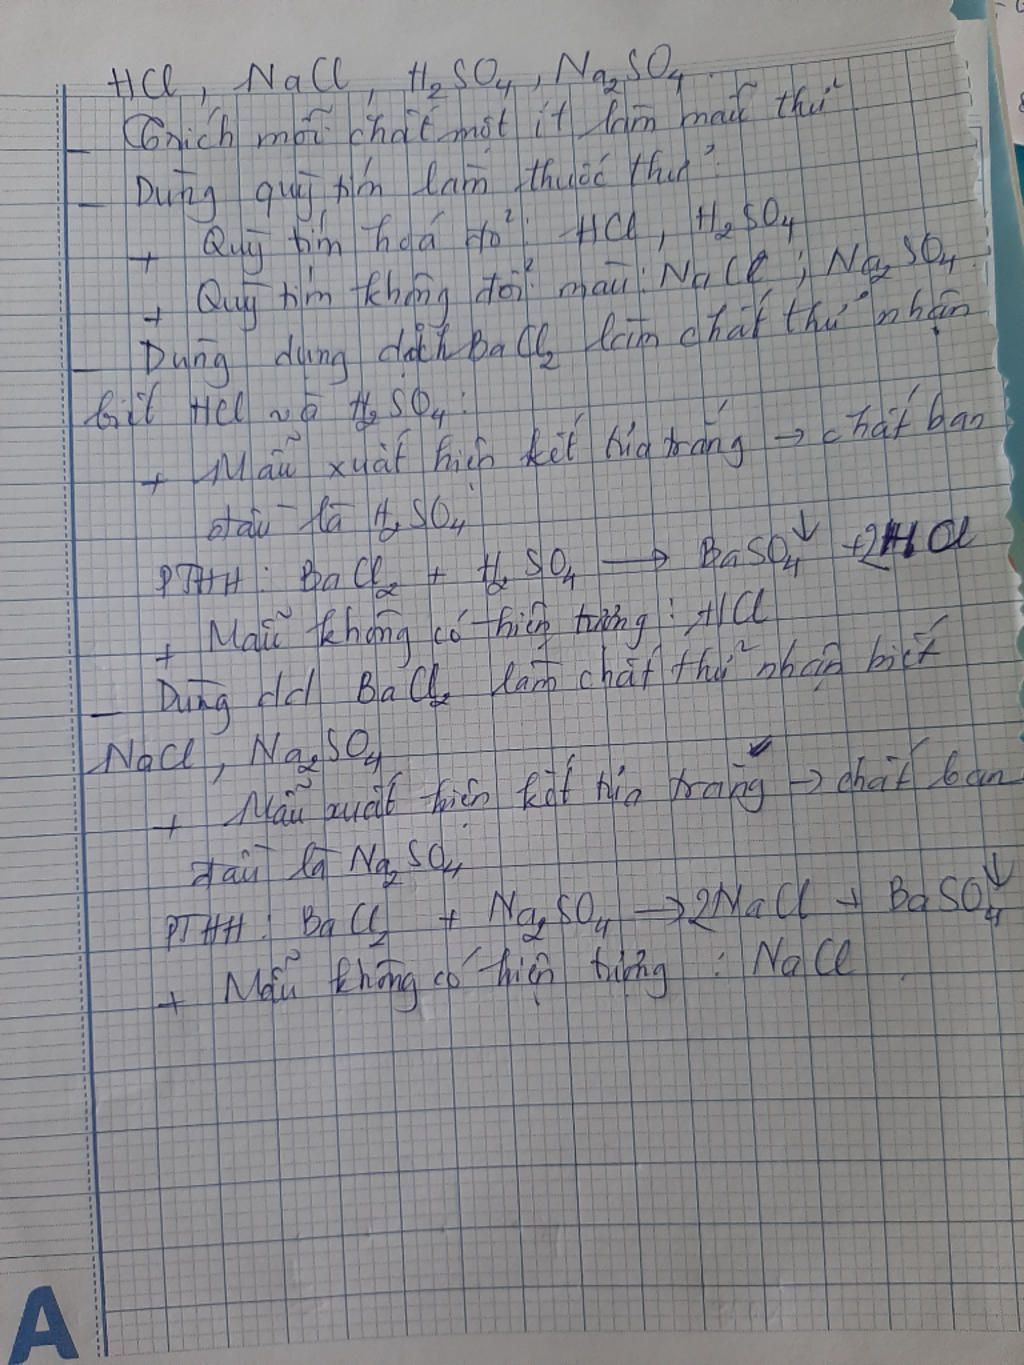 HCl, NaCl, H₂SO₄, Na₂SO₄
- Trích mỗi chất một ít làm mẫu thử
- Dùng quỳ tím làm thuốc thử:
+ Quỳ tím hoá đỏ: HCl, H₂SO₄
+ Quỳ tím không đổi màu: NaCl; Na₂SO₄
- Dùng dung dịch BaCl₂ làm chất thử nhận
biết HCl và H₂SO₄:
+ Mẫu xuất hiện kết tủa trắng → chất ban
đầu là H₂SO₄
PTHH: BaCl₂ + H₂SO₄ → BaSO₄↓ + 2HCl
+ Mẫu không có hiện tượng: HCl
- Dùng dd BaCl₂ làm chất thử nhận biết
NaCl, Na₂SO₄
+ Mẫu xuất hiện kết tủa trắng → chất ban
đầu là Na₂SO₄
PTHH: BaCl₂ + Na₂SO₄ → 2NaCl + BaSO₄↓
+ Mẫu không có hiện tượng: NaCl
A